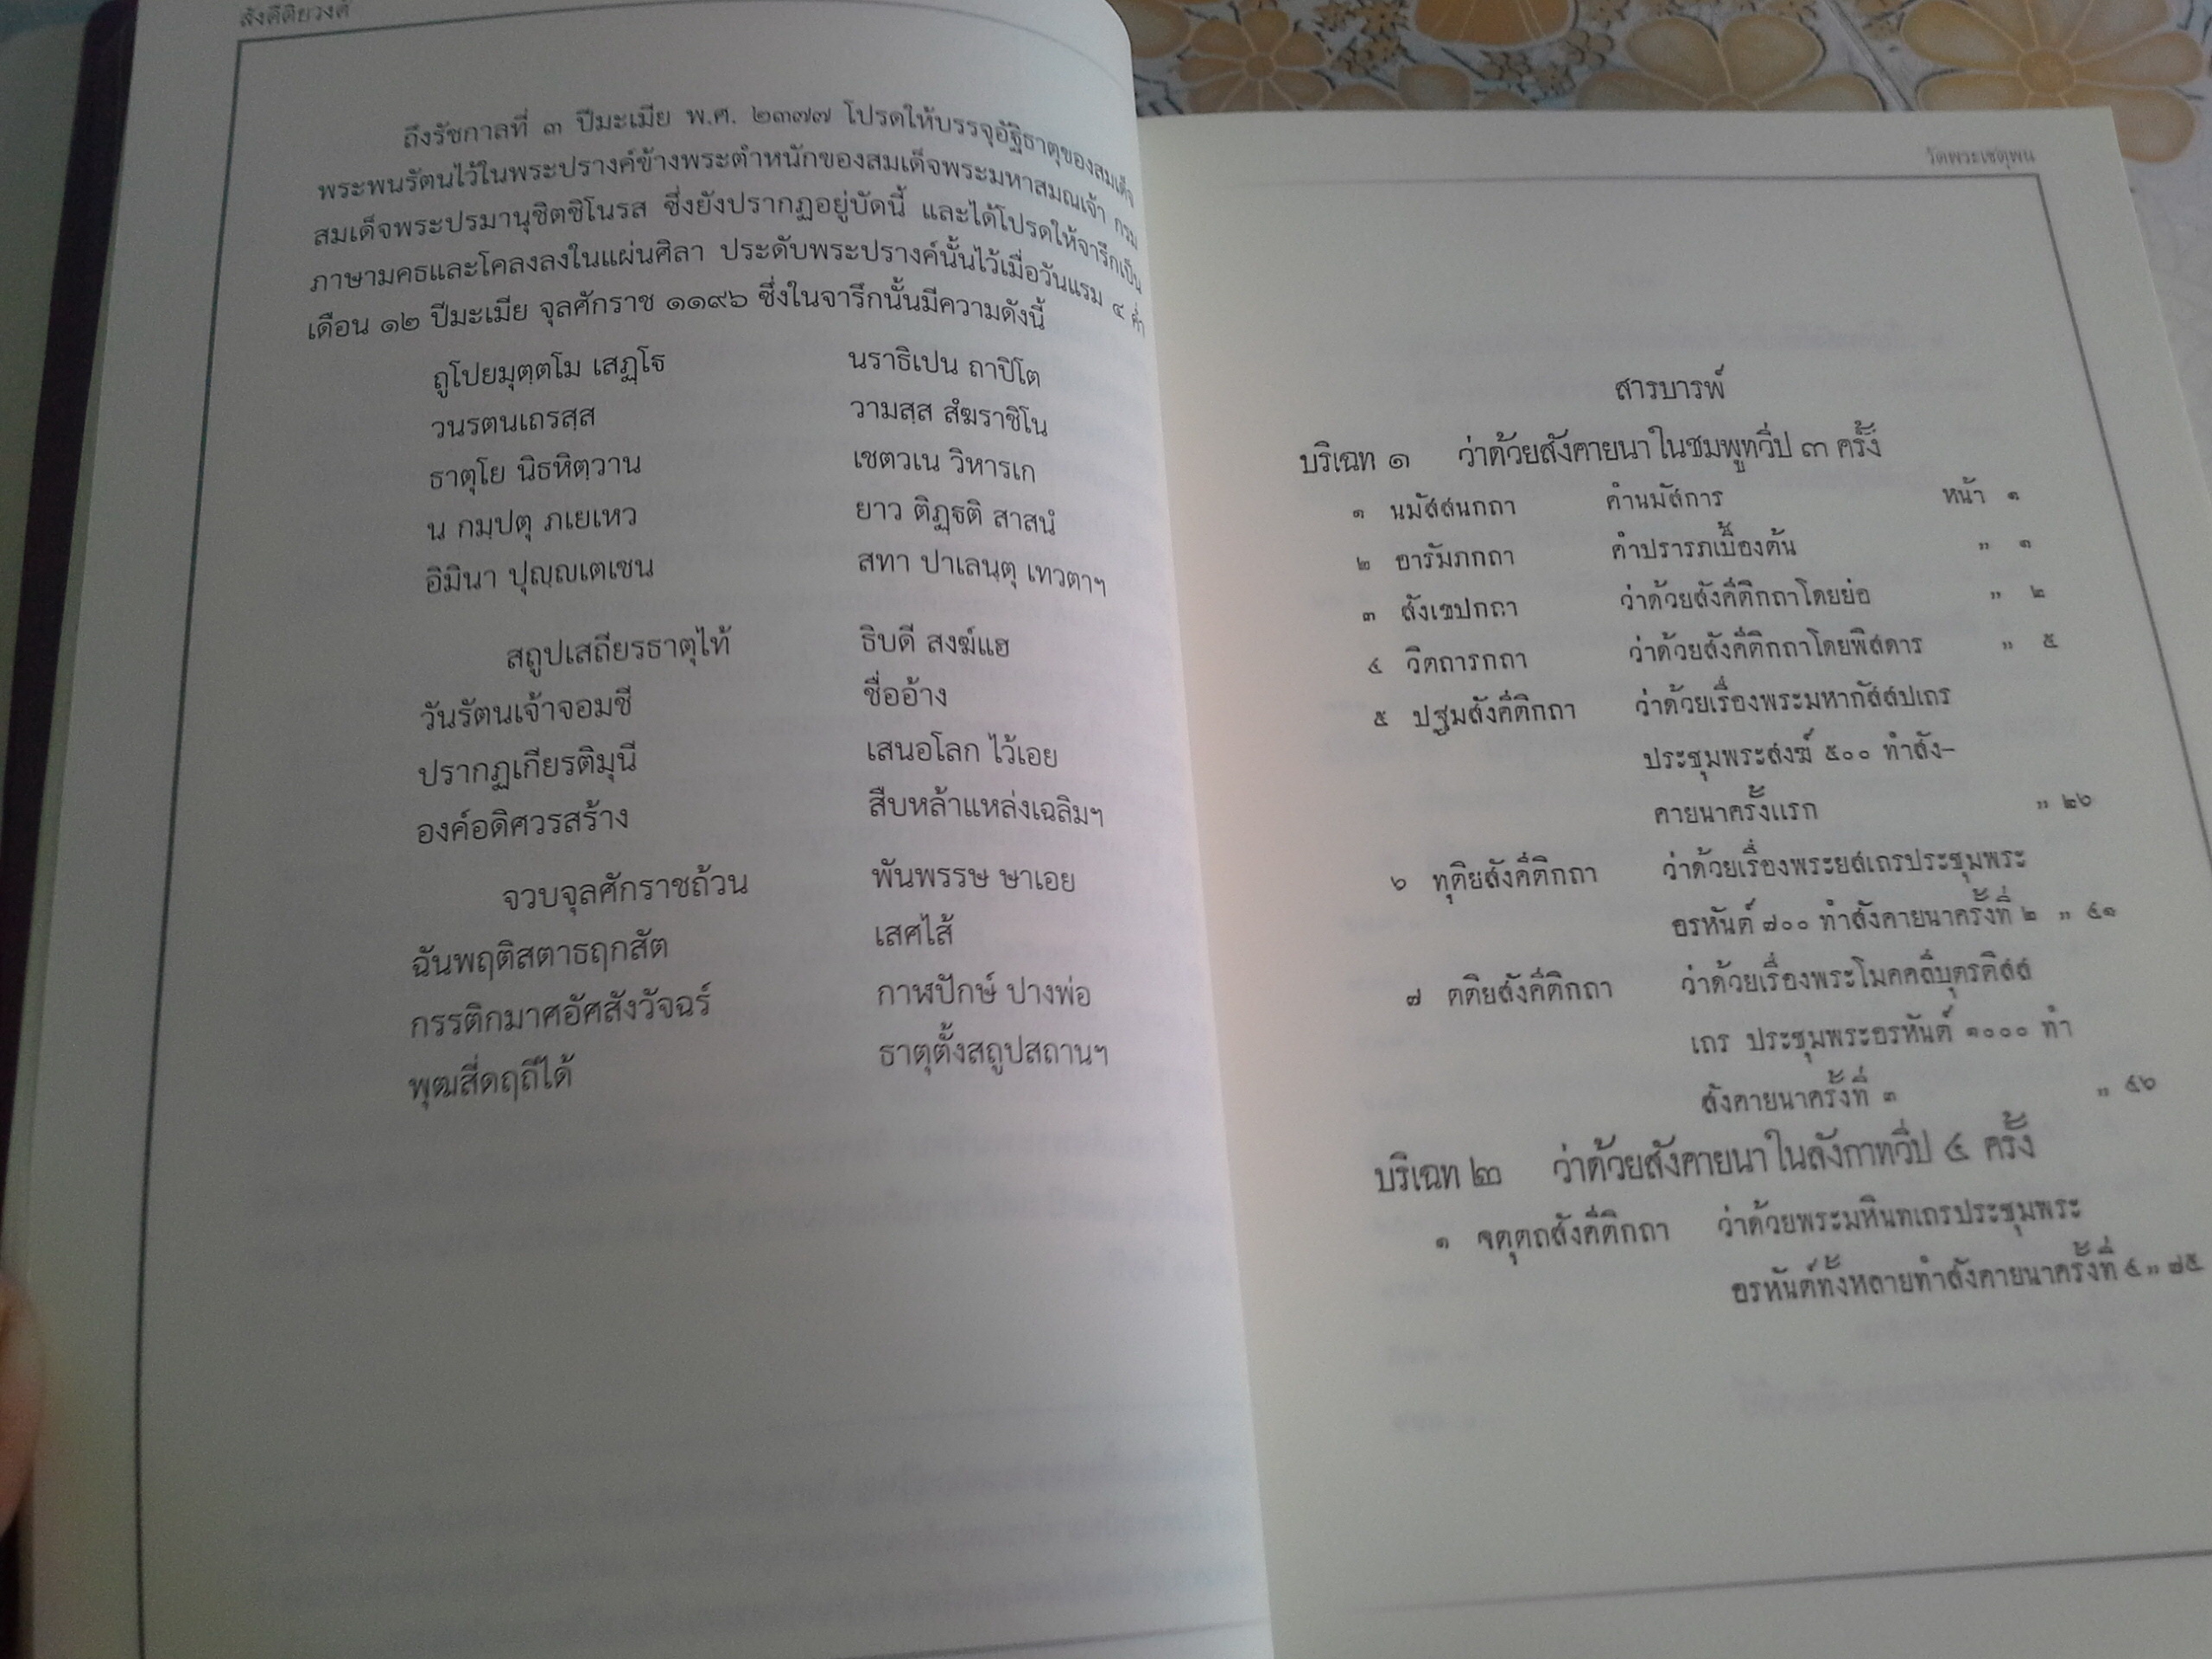 สังคีติยวงศ์
ถึงรัชกาลที่ ๓ ปีมะเมีย พ.ศ. ๒๓๗๗ โปรดให้บรรจุอัฐิธาตุของสมเด็จ
พระพนรัตนไว้ในพระปรางค์ข้างพระตำหนักของสมเด็จพระมหาสมณเจ้า กรม
สมเด็จพระปรมานุชิตชิโนรส ซึ่งยังปรากฏอยู่บัดนี้ และได้โปรดให้จารึกเป็น
ภาษามคธและโคลงลงในแผ่นศิลา ประดับพระปรางค์นั้นไว้เมื่อวันแรม ๔ ค่ำ
เดือน ๑๒ ปีมะเมีย จุลศักราช ๑๑๙๖ ซึ่งในจารึกนั้นมีความดังนี้
ถูโปยมุตฺตโม เสฏฺโฐ นราธิเปน ถาปิโต
วนรตนเถรสฺส วามสฺส สํฆราชิโน
ธาตุโย นิธหิตฺวาน เชตวเน วิหารเก
น กมฺปตุ ภเยเหว ยาว ติฏฺฐติ สาสนํ
อิมินา ปุญฺญเตเชน สทา ปาเลนฺตุ เทวตาฯ
สถูปเสถียรธาตุไท้ ธิบดี สงฆ์แฮ
วันรัตนเจ้าจอมชี ชื่ออ้าง
ปรากฏเกียรติมุนี เสนอโลก ไว้เอย
องค์อดิศวรสร้าง สืบหล้าแหล่งเฉลิมฯ
จวบจุลศักราชถ้วน พันพรรษ ษาเอย
ฉันพฤติสตาธฤกสัต เสศไส้
กรรติกมาศอัศสังวัจฉร์ กาฬปักษ์ ปางพ่อ
พุฒสี่ดฤถีได้ ธาตุตั้งสถูปสถานฯ
วัดพระเชตุพน
สารบารพ์
บริเฉท ๑ ว่าด้วยสังคายนาในชมพูทวีป ๓ ครั้ง
๑ นมัสสนกถา คำนมัสการ หน้า ๑
๒ อารัมภกถา คำปรารภเบื้องต้น ,, ๑
๓ สังเขปกถา ว่าด้วยสังคีติกถาโดยย่อ ,, ๒
๔ วิตถารกถา ว่าด้วยสังคีติกถาโดยพิสดาร ,, ๕
๕ ปฐมสังคีติกถา ว่าด้วยเรื่องพระมหากัสสปเถร
ประชุมพระสงฆ์ ๕๐๐ ทำสัง-
คายนาครั้งแรก ,, ๒๖
๖ ทุติยสังคีติกถา ว่าด้วยเรื่องพระยสเถรประชุมพระ
อรหันต์ ๗๐๐ ทำสังคายนาครั้งที่ ๒ ,, ๔๑
๗ ตติยสังคีติกถา ว่าด้วยเรื่องพระโมคคลีบุตรติสส
เถร ประชุมพระอรหันต์ ๑๐๐๐ ทำ
สังคายนาครั้งที่ ๓ ,, ๔๖
บริเฉท ๒ ว่าด้วยสังคายนาในลังกาทวีป ๔ ครั้ง
๑ จตุตถสังคีติกถา ว่าด้วยพระมหินทเถรประชุมพระ
อรหันต์ทั้งหลายทำสังคายนาครั้งที่ ๔ ,, ๗๕